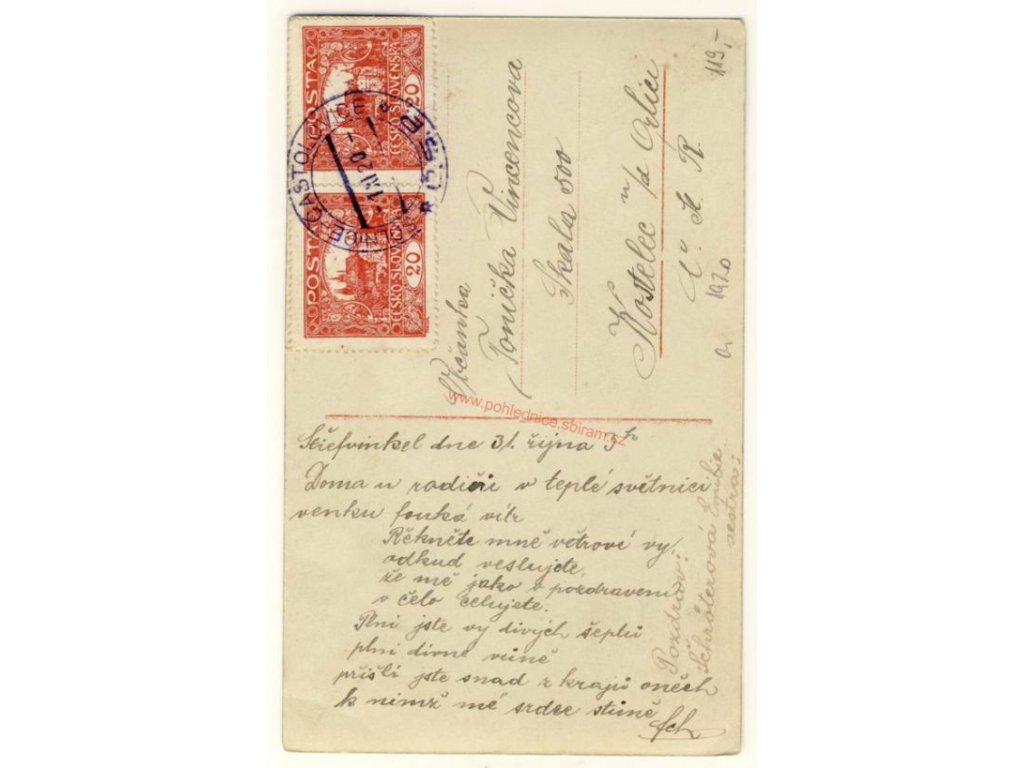 119,-
POSTA
ČESKO-SLOVENSKÁ
20
POSTA
ČESKO-SLOVENSKÁ
20
Vrčanka
Tonička Vincencova
Skala 500
Kostelec n/a Orlicí
Č. S. R.
1920
www.pohlednice.sbiram.cz
dne 31. října
Doma u rodičů v teplé světnici
venku fouká vítr
Řěkněte mně větrové vy
odkud veslujete,
že mě jako v pozdravení
v čelo celujete.
Plni jste vy divých šeptů
plni divné vůně
přišli jste snad z krajů oněch
k nimž mé srdce stůně
Sch
Pozdrav:
Schröterová Emilie
sestra: